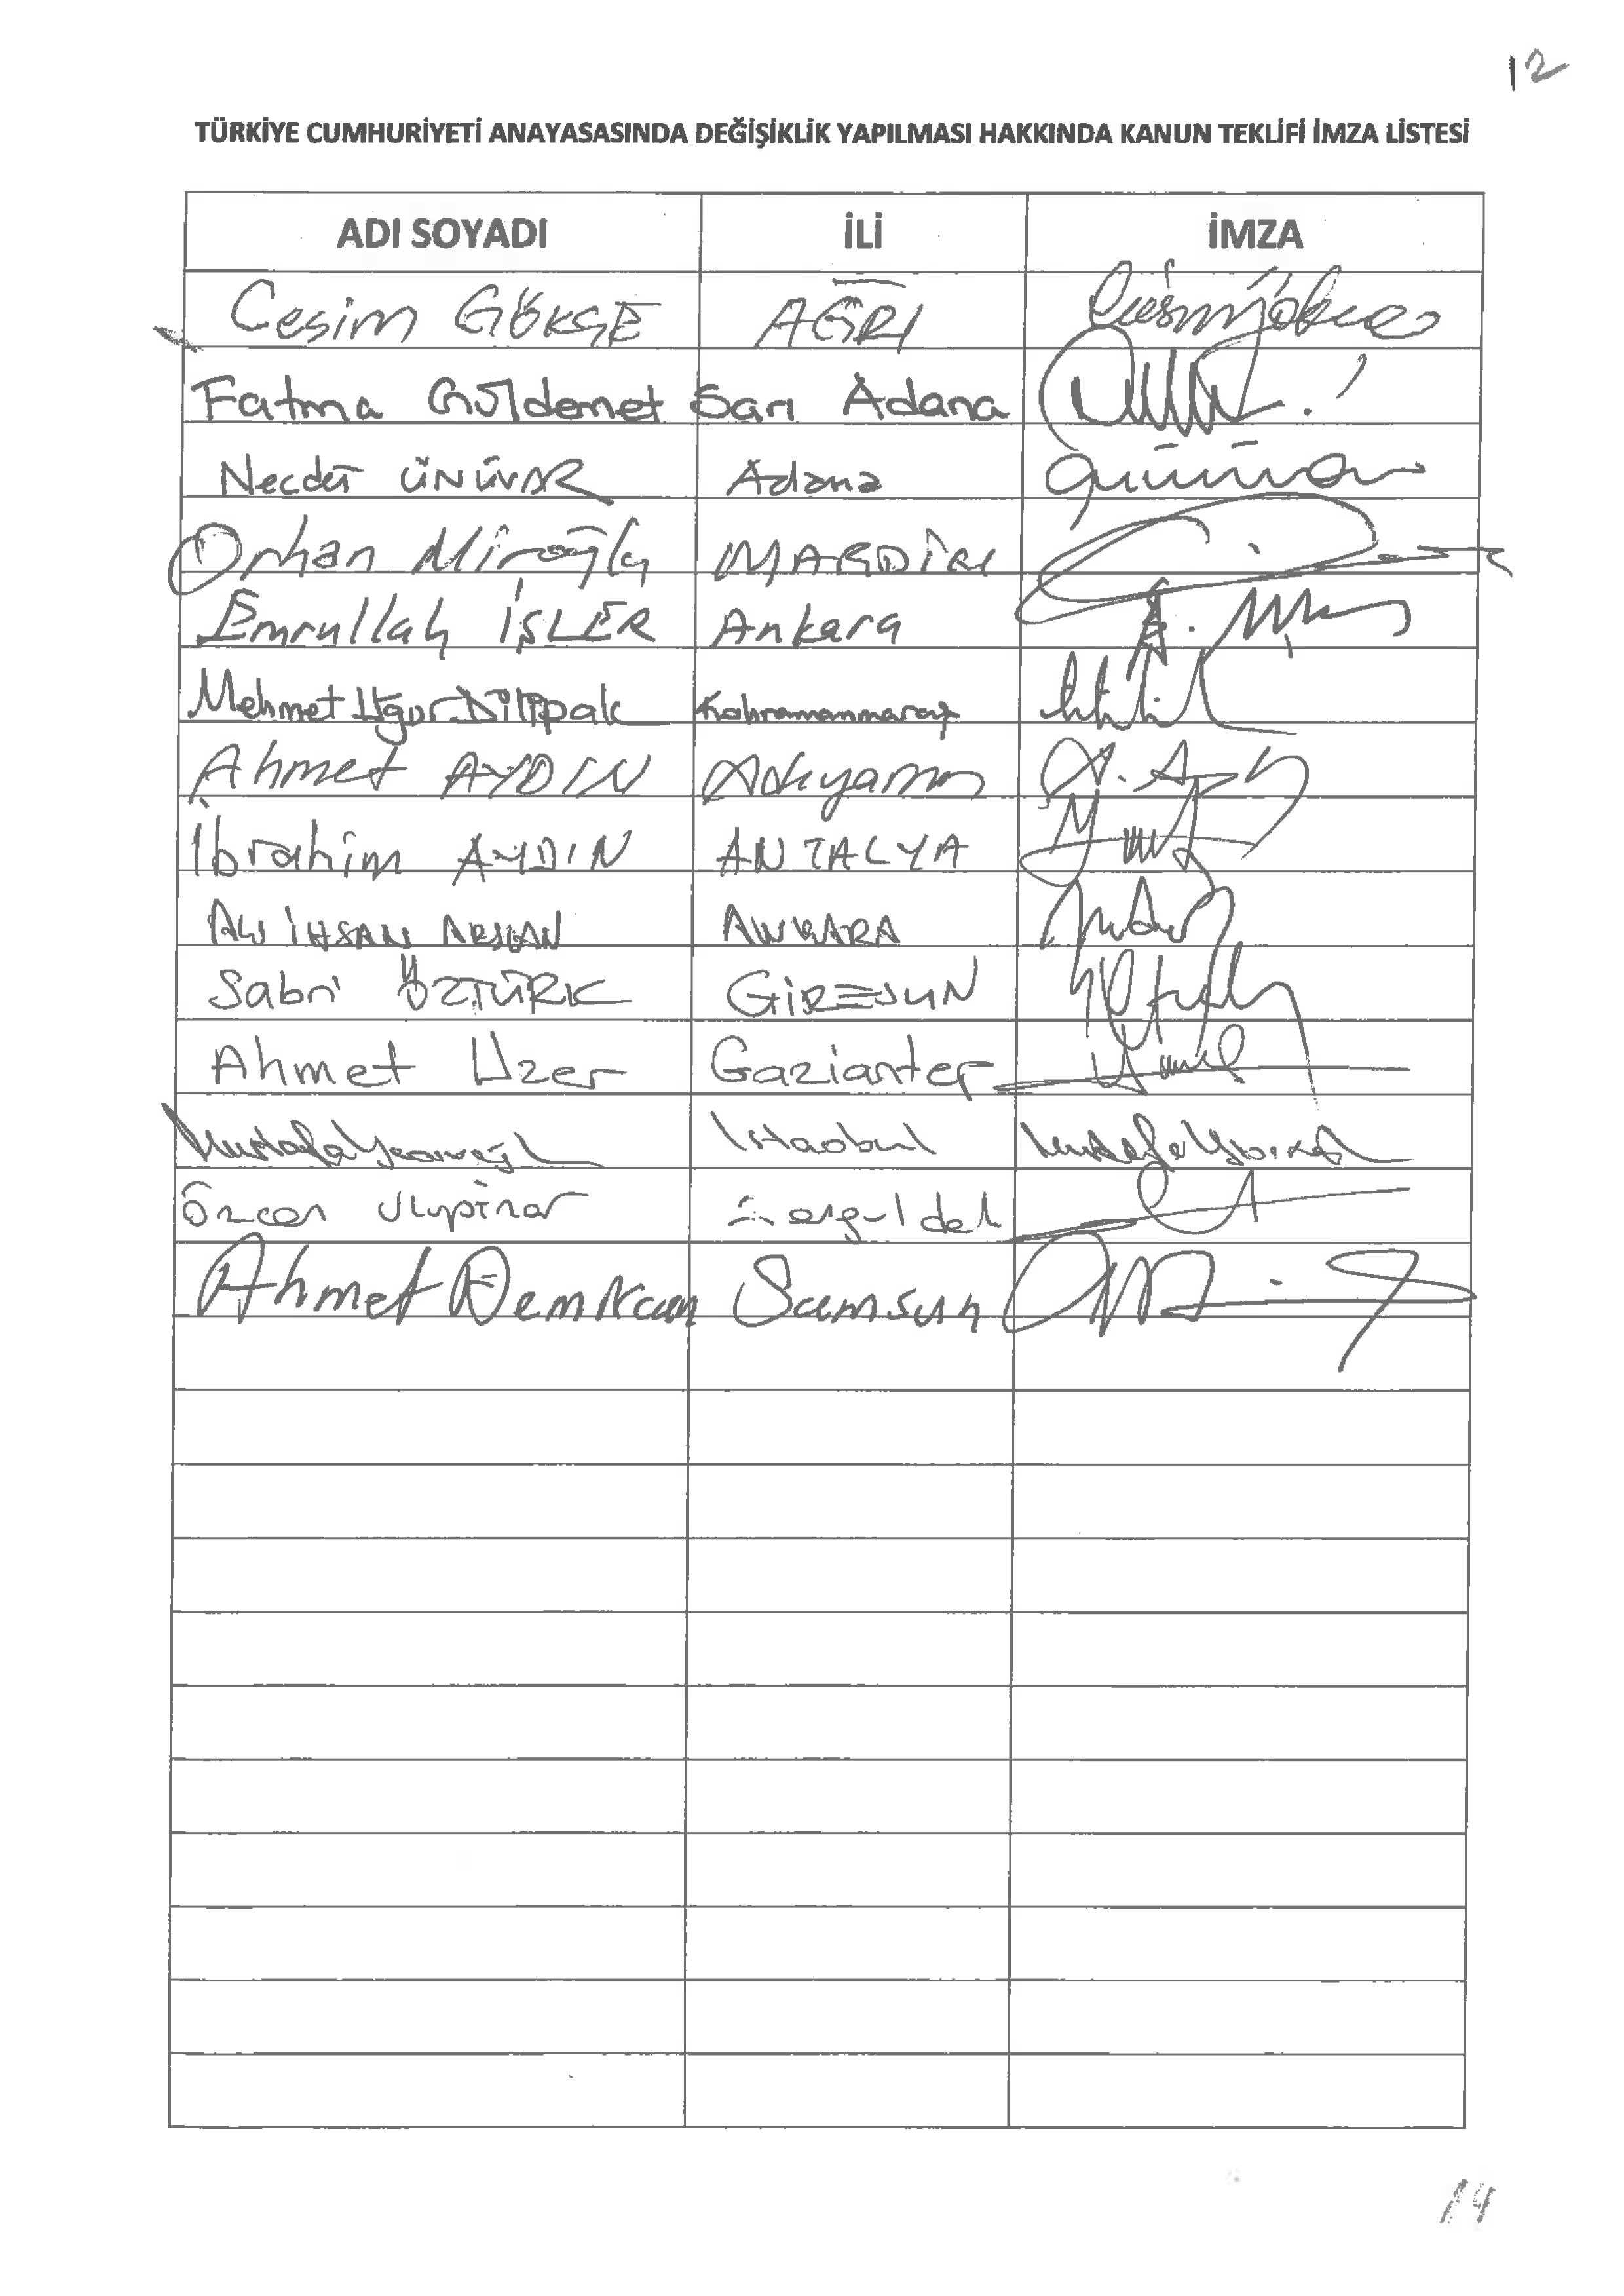 12
TÜRKİYE CUMHURİYETİ ANAYASASINDA DEĞİŞİKLİK YAPILMASI HAKKINDA KANUN TEKLİFİ İMZA LİSTESİ
ADI SOYADI İLİ İMZA
Cesim GÖKÇE AĞRI
Fatma Güldemet Sarı Adana
Necdet ÜNÜVAR Adana
Orhan Miroğlu MARDİN
Emrullah İŞLER Ankara
Mehmet Uğur Dilipak Kahramanmaraş
Ahmet AYDIN Adıyaman
İbrahim AYDIN ANTALYA
ALİ İHSAN ARSLAN ANKARA
Sabri ÖZTÜRK GİRESUN
Ahmet Uzer Gaziantep
Mustafa Yeneroğlu İstanbul
Özcan Ulupınar Zonguldak
Ahmet Demircan Samsun
14